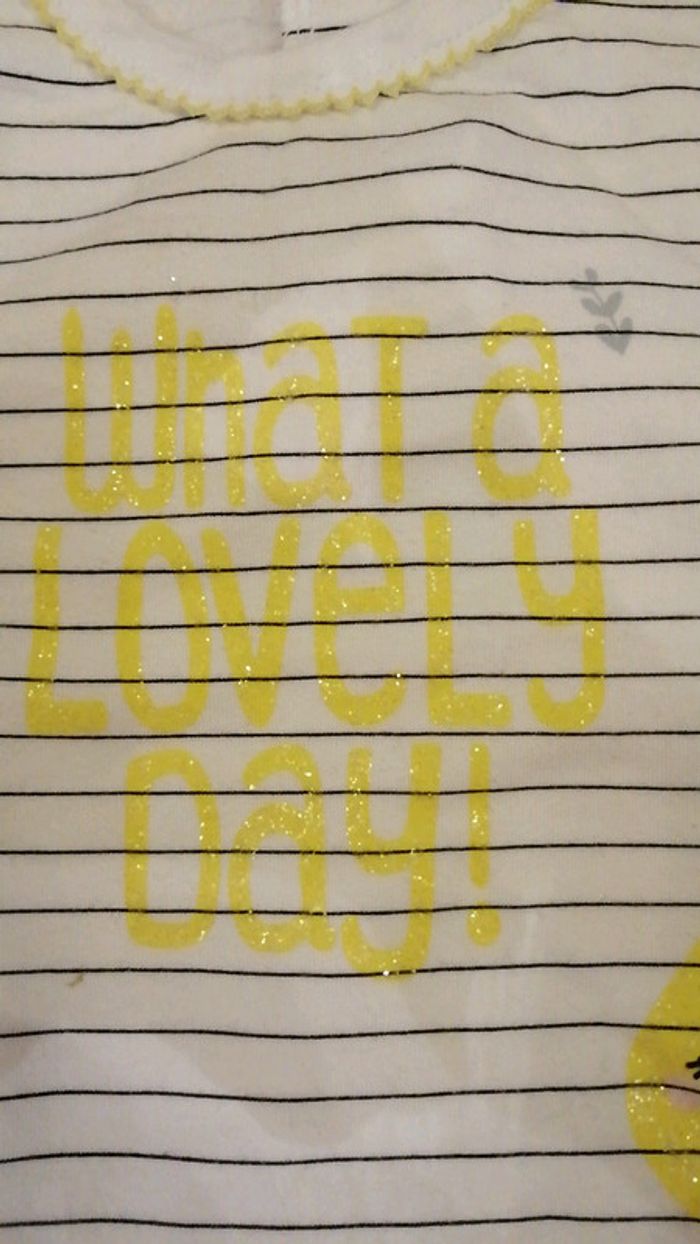 What a
LOVELY
Day!